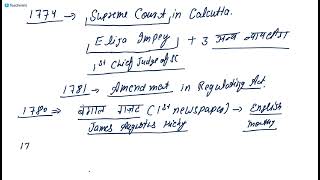 Teachmint
1774 → Supreme Court in Calcutta.
Eliza Impey + 3 अन्य न्यायाधीश
1st Chief Judge of SC
1781 → Amendment in Regulating Act.
1780 ⇒ बंगाल गजट (1st newspaper) → English
James Augustus Hicky
17